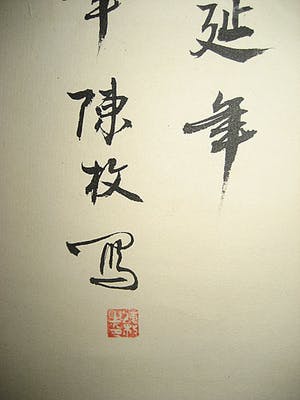 延年
陳枚寫